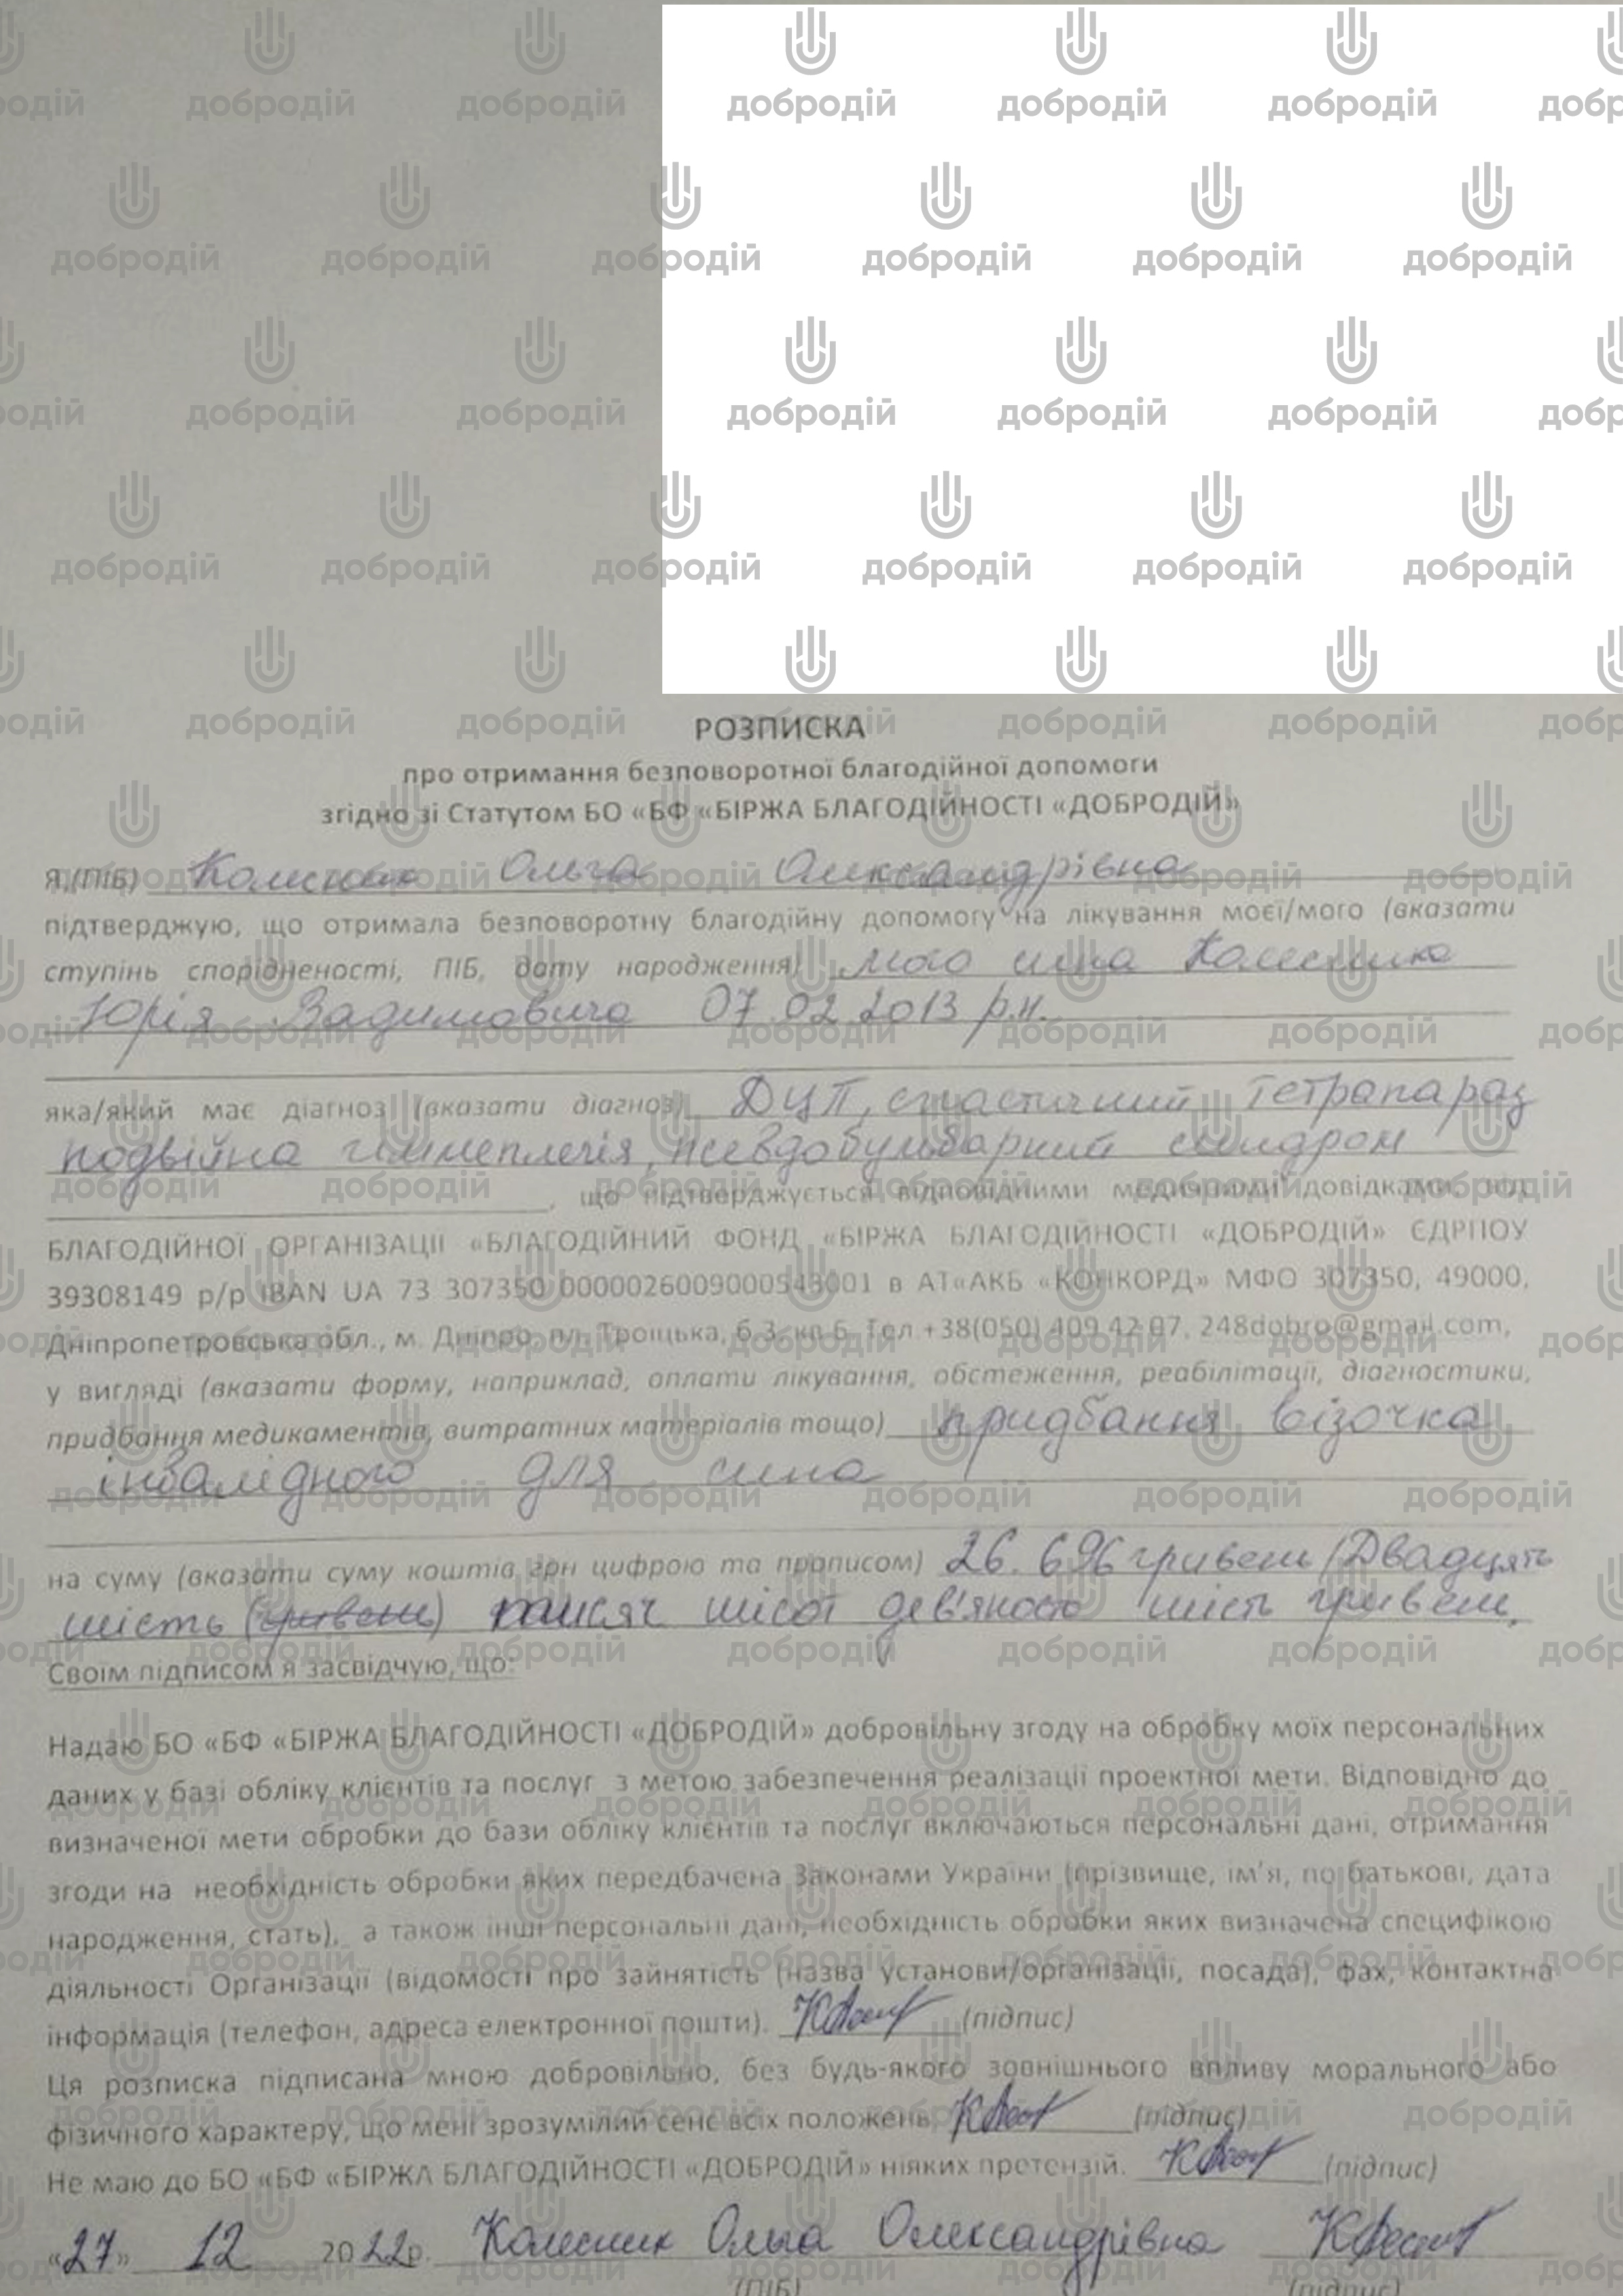 РОЗПИСКА
про отримання безповоротної благодійної допомоги
згідно зі Статутом БО «БФ «БІРЖА БЛАГОДІЙНОСТІ «ДОБРОДІЙ»
Я,(ПІБ) Колесник Ольга Олександрівна
підтверджую, що отримала безповоротну благодійну допомогу на лікування моєї/мого (вказати
ступінь спорідненості, ПІБ, дату народження) мого сина Колесника
Юрія Вадимовича 07.02.2013 р.н.
яка/який має діагноз (вказати діагноз) ДЦП, спастичний тетрапарез
подвійна геміплегія, псевдобульбарний синдром
, що підтверджується відповідними медичними довідками, від
БЛАГОДІЙНОЇ ОРГАНІЗАЦІЇ «БЛАГОДІЙНИЙ ФОНД «БІРЖА БЛАГОДІЙНОСТІ «ДОБРОДІЙ» ЄДРПОУ
39308149 р/р IBAN UA 73 307350 0000026009000543001 в АТ«АКБ «КОНКОРД» МФО 307350, 49000,
Дніпропетровська обл., м. Дніпро, пл. Троїцька, б.3, кв.6. Тел +38(050) 409 42 07, 248dobro@gmail.com,
у вигляді (вказати форму, наприклад, оплати лікування, обстеження, реабілітації, діагностики,
придбання медикаментів, витратних матеріалів тощо) придбання візочка
інвалідного для сина
на суму (вказати суму коштів грн цифрою та прописом) 26.696 гривень (Двадцять
шість (гривень) тисяч шісот дев'яносто шість гривень.
Своїм підписом я засвідчую, що:
Надаю БО «БФ «БІРЖА БЛАГОДІЙНОСТІ «ДОБРОДІЙ» добровільну згоду на обробку моїх персональних
даних у базі обліку клієнтів та послуг з метою забезпечення реалізації проектної мети. Відповідно до
визначеної мети обробки до бази обліку клієнтів та послуг включаються персональні дані, отримання
згоди на необхідність обробки яких передбачена Законами України (прізвище, ім'я, по батькові, дата
народження, стать), а також інші персональні дані, необхідність обробки яких визначена специфікою
діяльності Організації (відомості про зайнятість (назва установи/організації, посада), фах, контактна
інформація (телефон, адреса електронної пошти). (підпис)
Ця розписка підписана мною добровільно, без будь-якого зовнішнього впливу морального або
фізичного характеру, що мені зрозумілий сенс всіх положень. (підпис)
Не маю до БО «БФ «БІРЖА БЛАГОДІЙНОСТІ «ДОБРОДІЙ» ніяких претензій. (підпис)
«27» 12 2022р. Колесник Ольга Олександрівна
(ПІБ) (підпис)
добродій